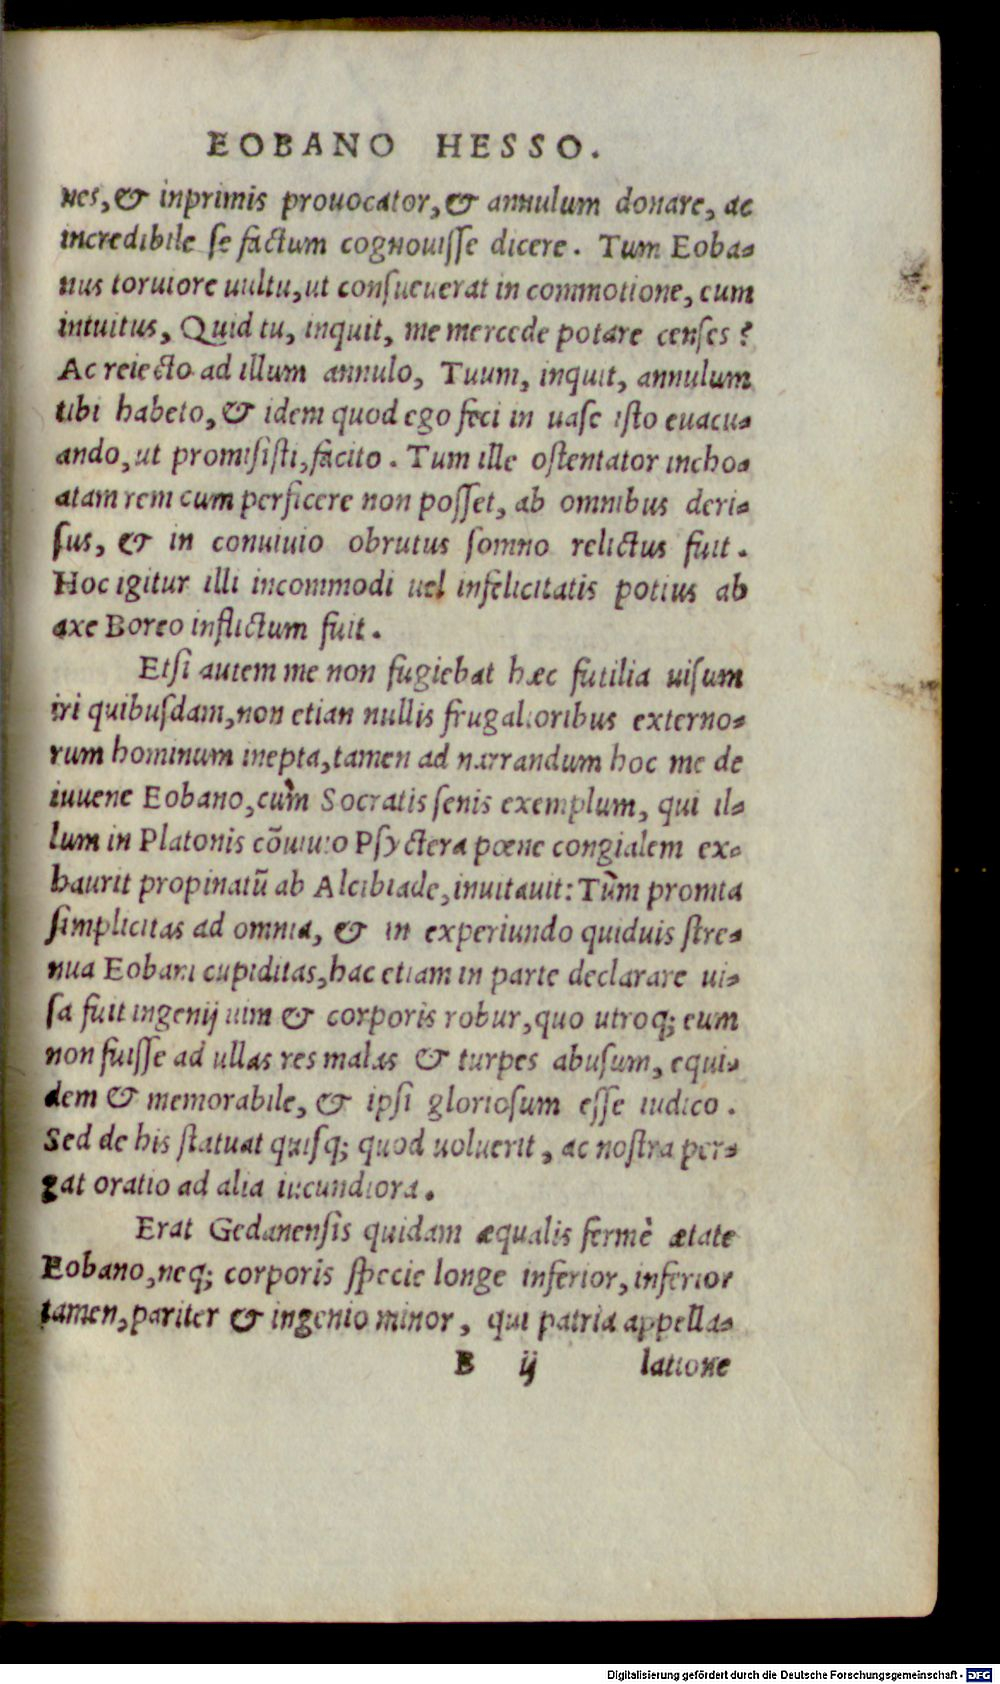 EOBANO HESSO.
nes, & inprimis prouocator, & annulum donare, ac
incredibile ſe factum cognouiſſe dicere. Tum Eoba-
nus toruiore uultu, ut conſueuerat in commotione, cum
intuitus, Quid tu, inquit, me mercede potare cenſes?
Ac reiecto ad illum annulo, Tuum, inquit, annulum
tibi habeto, & idem quod ego feci in uaſe iſto euacu-
ando, ut promiſiſti, facito. Tum ille oſtentator incho-
atam rem cum perficere non poſſet, ab omnibus deri-
ſus, & in conuiuio obrutus ſomno relictus fuit.
Hoc igitur illi incommodi uel infelicitatis potius ab
axe Boreo inflictum fuit.
Etſi autem me non fugiebat hæc futilia uiſum
iri quibuſdam, non etian nullis frugalioribus externo-
rum hominum inepta, tamen ad narrandum hoc me de
iuuene Eobano, cùm Socratis ſenis exemplum, qui il-
lum in Platonis cōuiuio Pſyctera pœne congialem ex-
haurit propinatū ab Alcibiade, inuitauit: Tùm promta
ſimplicitas ad omnia, & in experiundo quiduis ſtre-
nua Eobani cupiditas, hac etiam in parte declarare ui-
ſa fuit ingenij uim & corporis robur, quo utroq; eum
non fuiſſe ad ullas res malas & turpes abuſum, equi-
dem & memorabile, & ipſi glorioſum eſſe iudico.
Sed de his ſtatuat quiſq; quod uoluerit, ac noſtra per-
gat oratio ad alia iucundiora.
Erat Gedanenſis quidam æqualis fermè ætate
Eobano, neq; corporis ſpecie longe inferior, inferior
tamen, pariter & ingenio minor, qui patria appella-
B ij latione
Digitalisierung gefördert durch die Deutsche Forschungsgemeinschaft - DFG